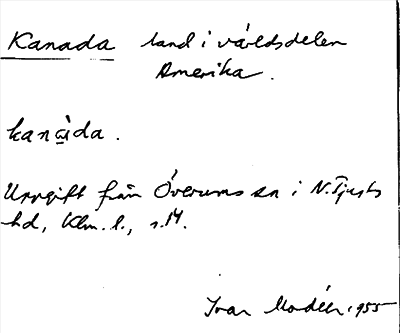 Kanada land i världsdelen
Amerika.
kanàda.
Uppgift från Överums sn i N. Tjusts
hd, Klm. l., s. 14.
Ivar Modéer 1955